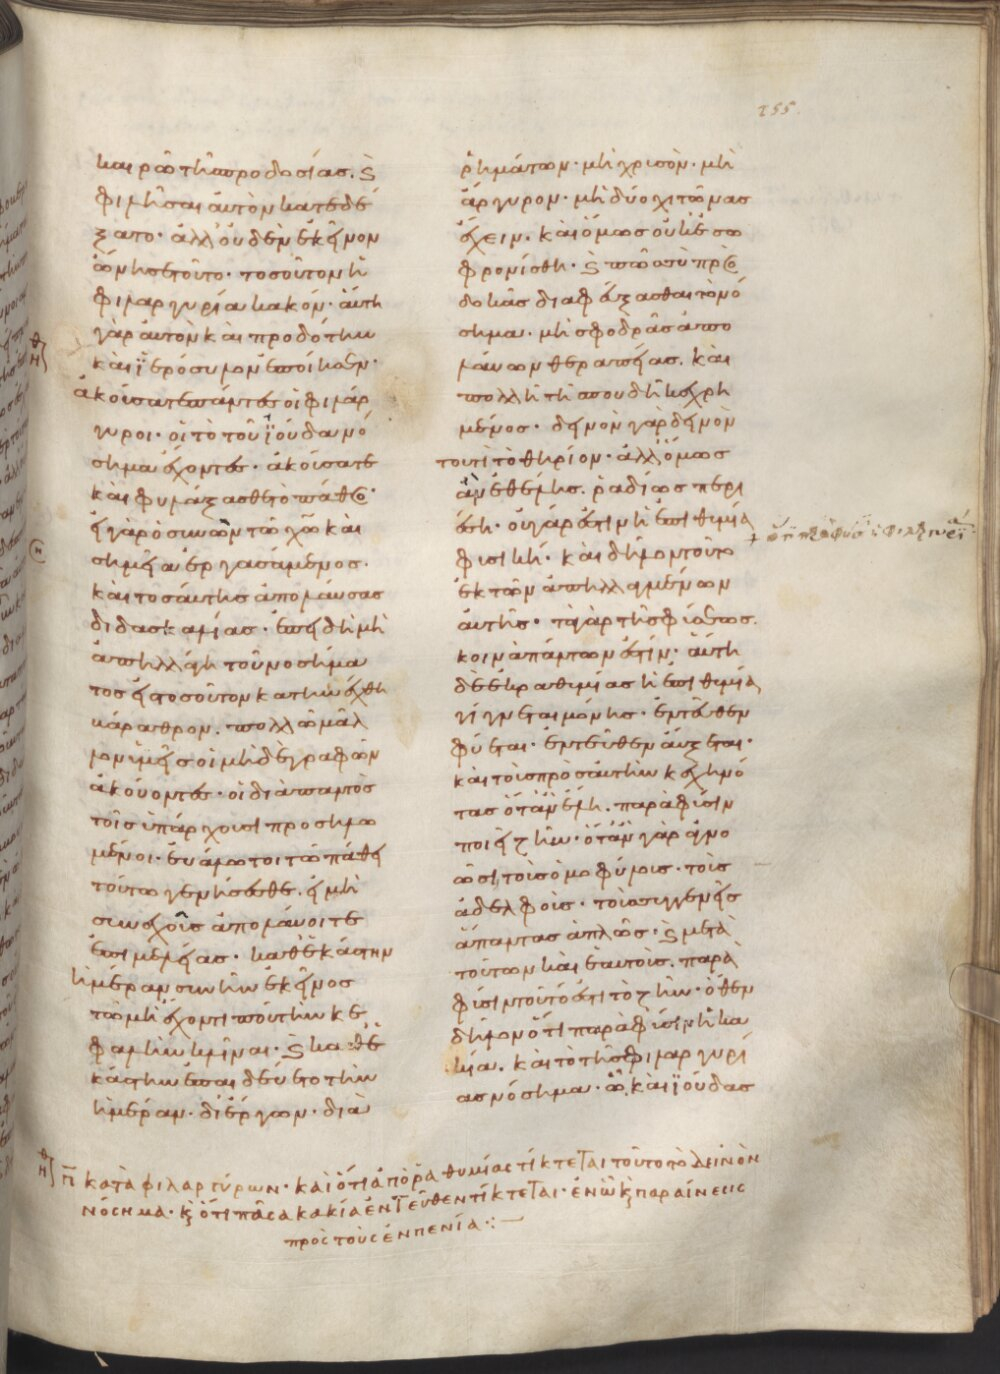 255
καιρῶ τῆς προδοσίας. καὶ
φιλῆσαι αὐτὸν κατεδέ
ξατο· ἀλλ' οὐδὲν ἐκεῖνον
ὤνησε τοῦτο· τοσοῦτον ἡ
φιλαργυρία κακόν· αὕτη
γὰρ αὐτὸν καὶ προδότην
καὶ ἱερόσυλον ἐποίησεν·
ἀκούσατε πάντες οἱ φιλάρ
γυροι· οἱ τὸ τοῦ ϊούδα νό
σημα ἔχοντες· ἀκούσατε
καὶ φυλάξασθε τὸ πάθος·
εἰ γὰρ ὁ συνὼν τῶ χῶ καὶ
σημεῖα ἐργασάμενος·
καὶ τοσαύτης ἀπολαύσας
διδασκαλίας· ἐπειδὴ μὴ
ἀπηλλάγη τοῦ νοσήμα
τος εἰς τοσοῦτον κατηνέχθη
βάραθρον· πολλῶ μᾶλ
λον ὑμεῖς οἱ μηδὲ γραφῶν
ἀκούοντες· οἱ διαπαντὸς
τοῖς ὑπάρχουσι προσηλω
μένοι· εὐάλωτοι τῶ πάθει
τούτω γενήσεσθε· εἰ μὴ
συνεχοῦς ἀπολαύοιτε
ἐπιμελείας· καθ' ἑκάστην
ἡμέραν συνῆν ἐκεῖνος
τῶ μὴ ἔχοντι ποῦ τὴν κε
φαλὴν κλῖναι· καὶ καθε
κάστην ἐπαιδεύετο τὴν
ἡμέραν· δι' ἔργων· διὰ
ῥημάτων· μὴ χρυσὸν· μὴ
ἄργυρον· μὴ δύο χιτῶνας
ἔχειν· καὶ ὅμως οὐκ ἐσω
φρονίσθη· καὶ πῶς σὺ προσ
δοκᾶς διαφεύξασθαι τὸ νό
σημα· μὴ σφοδρᾶς ἀπο
λαύων θεραπείας· καὶ
πολλῆ τῆ σπουδῆ κεχρη
μένος· δεινὸν γὰρ δεινὸν
τουτὶ τὸ θηρίον· ἀλλ' ὅμως
ἂν ἐθέλης· ῥαδίως περι
έση· οὐ γάρ ἐστιν ἡ ἐπιθυμία
φυσικὴ· καὶ δῆλον τοῦτο
ἐκ τῶν ἀπηλλαγμένων
αὐτῆς· τὰ γὰρ τῆς φύσεως
κοινὰ πάντων ἐστίν· αὕτη
δὲ ἐκ ραθυμίας ἡ ἐπιθυμία
γίγνεται μόνης· ἐντεῦθεν
φύεται· ἐντεῦθεν αὔξεται·
καὶ τοὺς πρὸς αὐτὴν κεχηνό
τας ὅταν ἕλη· παρὰ φύσιν
ποιεῖ ζῆν· ὅταν γὰρ ἀγνο
ῶσι τοὺς ὁμοφύλους· τοὺς
ἀδελφοὺς· τοὺς συγγενεῖς
ἅπαντας ἁπλῶς· καὶ μετὰ
τούτων καὶ ἑαυτοὺς· παρὰ
φύσιν τοῦτό ἐστι τὸ ζῆν· ὅθεν
δῆλον ὅτι παρὰ φύσιν ἡ κα
κία· καὶ τὸ τῆς φιλαργυρί
ας νόσημα· ὧ καὶ ϊούδας
π κατὰ φιλαργύρων· καὶ ὅτι ἀπὸ ῥαθυμίας τίκτεται τοῦτο τὸ δεινὸν
νόσημα· καὶ ὅτι πᾶσα κακία ἐντεῦθεν τίκτεται· ἐν ὧ καὶ παραίνεσις
πρὸς τοὺς ἐν πενία